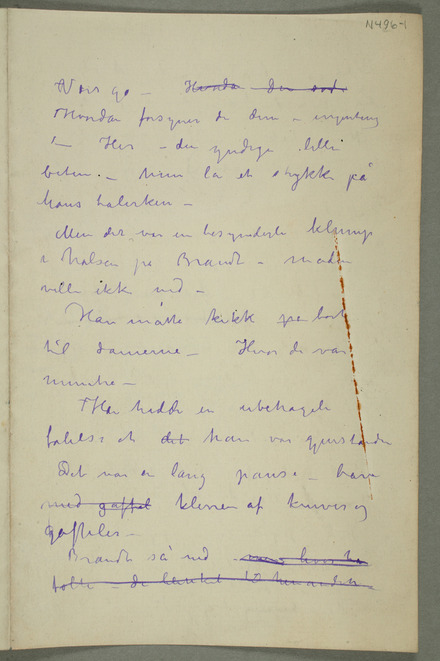 N496-1
Vær go –
Hvordan forsyner de dem – ingenting
– Her – den yndige lille
biten. – hun la et stykke på
hans talerken –
Men det var en besynderlig klump
i halsen på Brandt – maden
vilde ikke ned –
Han måtte kikke på bort
til damerne – Hvor de var
muntre –
Han hadde en ubehagelig
følelse at det han var gjenstanden
Det var en lang pause – bare
med gaffel klirren af kniver og
gafler –
Brandt så ned